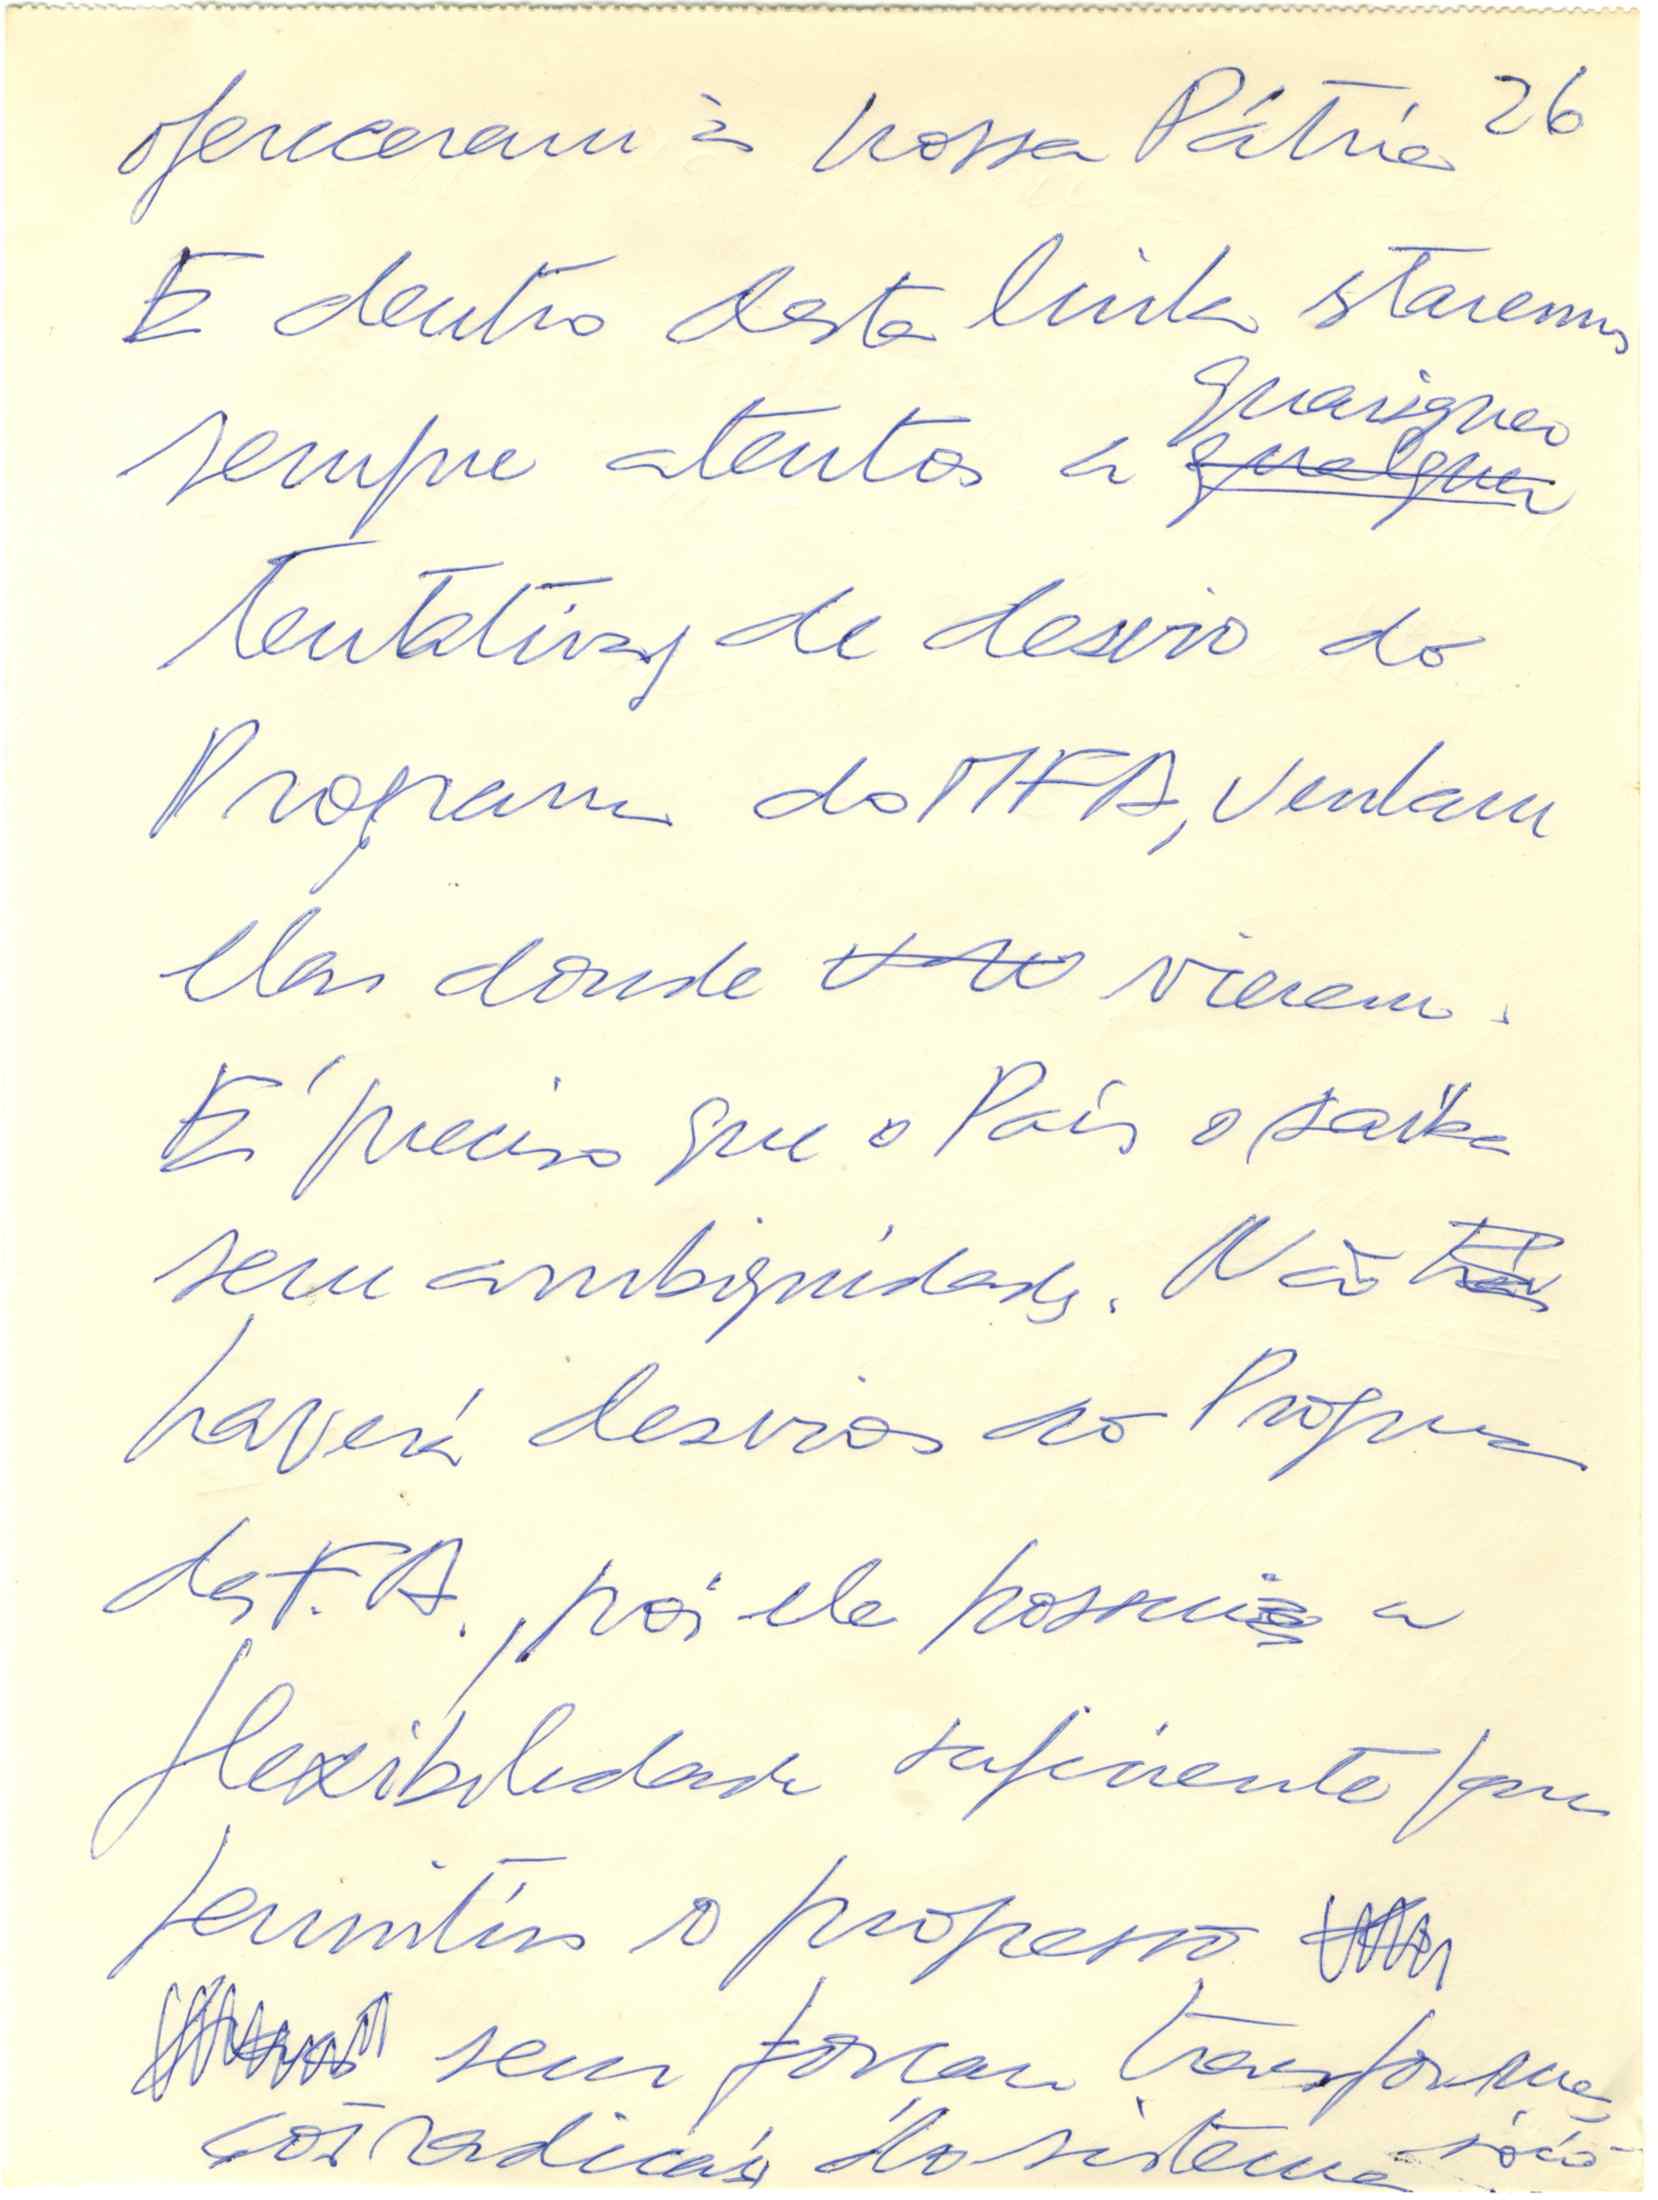 ofereceram à nossa Pátria 26
E dentro desta linha estaremos
quaisquer
sempre atentos a qualquer
tentativas de desvio do
Programa do MFA, venham
elas donde vierem.
É preciso que o País o saiba
sem ambiguidades. Não
haverá desvios ao Programa
das F.A., pois ele possui a
flexibilidade suficiente para
permitir o progresso
sem forçar transforma
ções radicais do sistema sócio